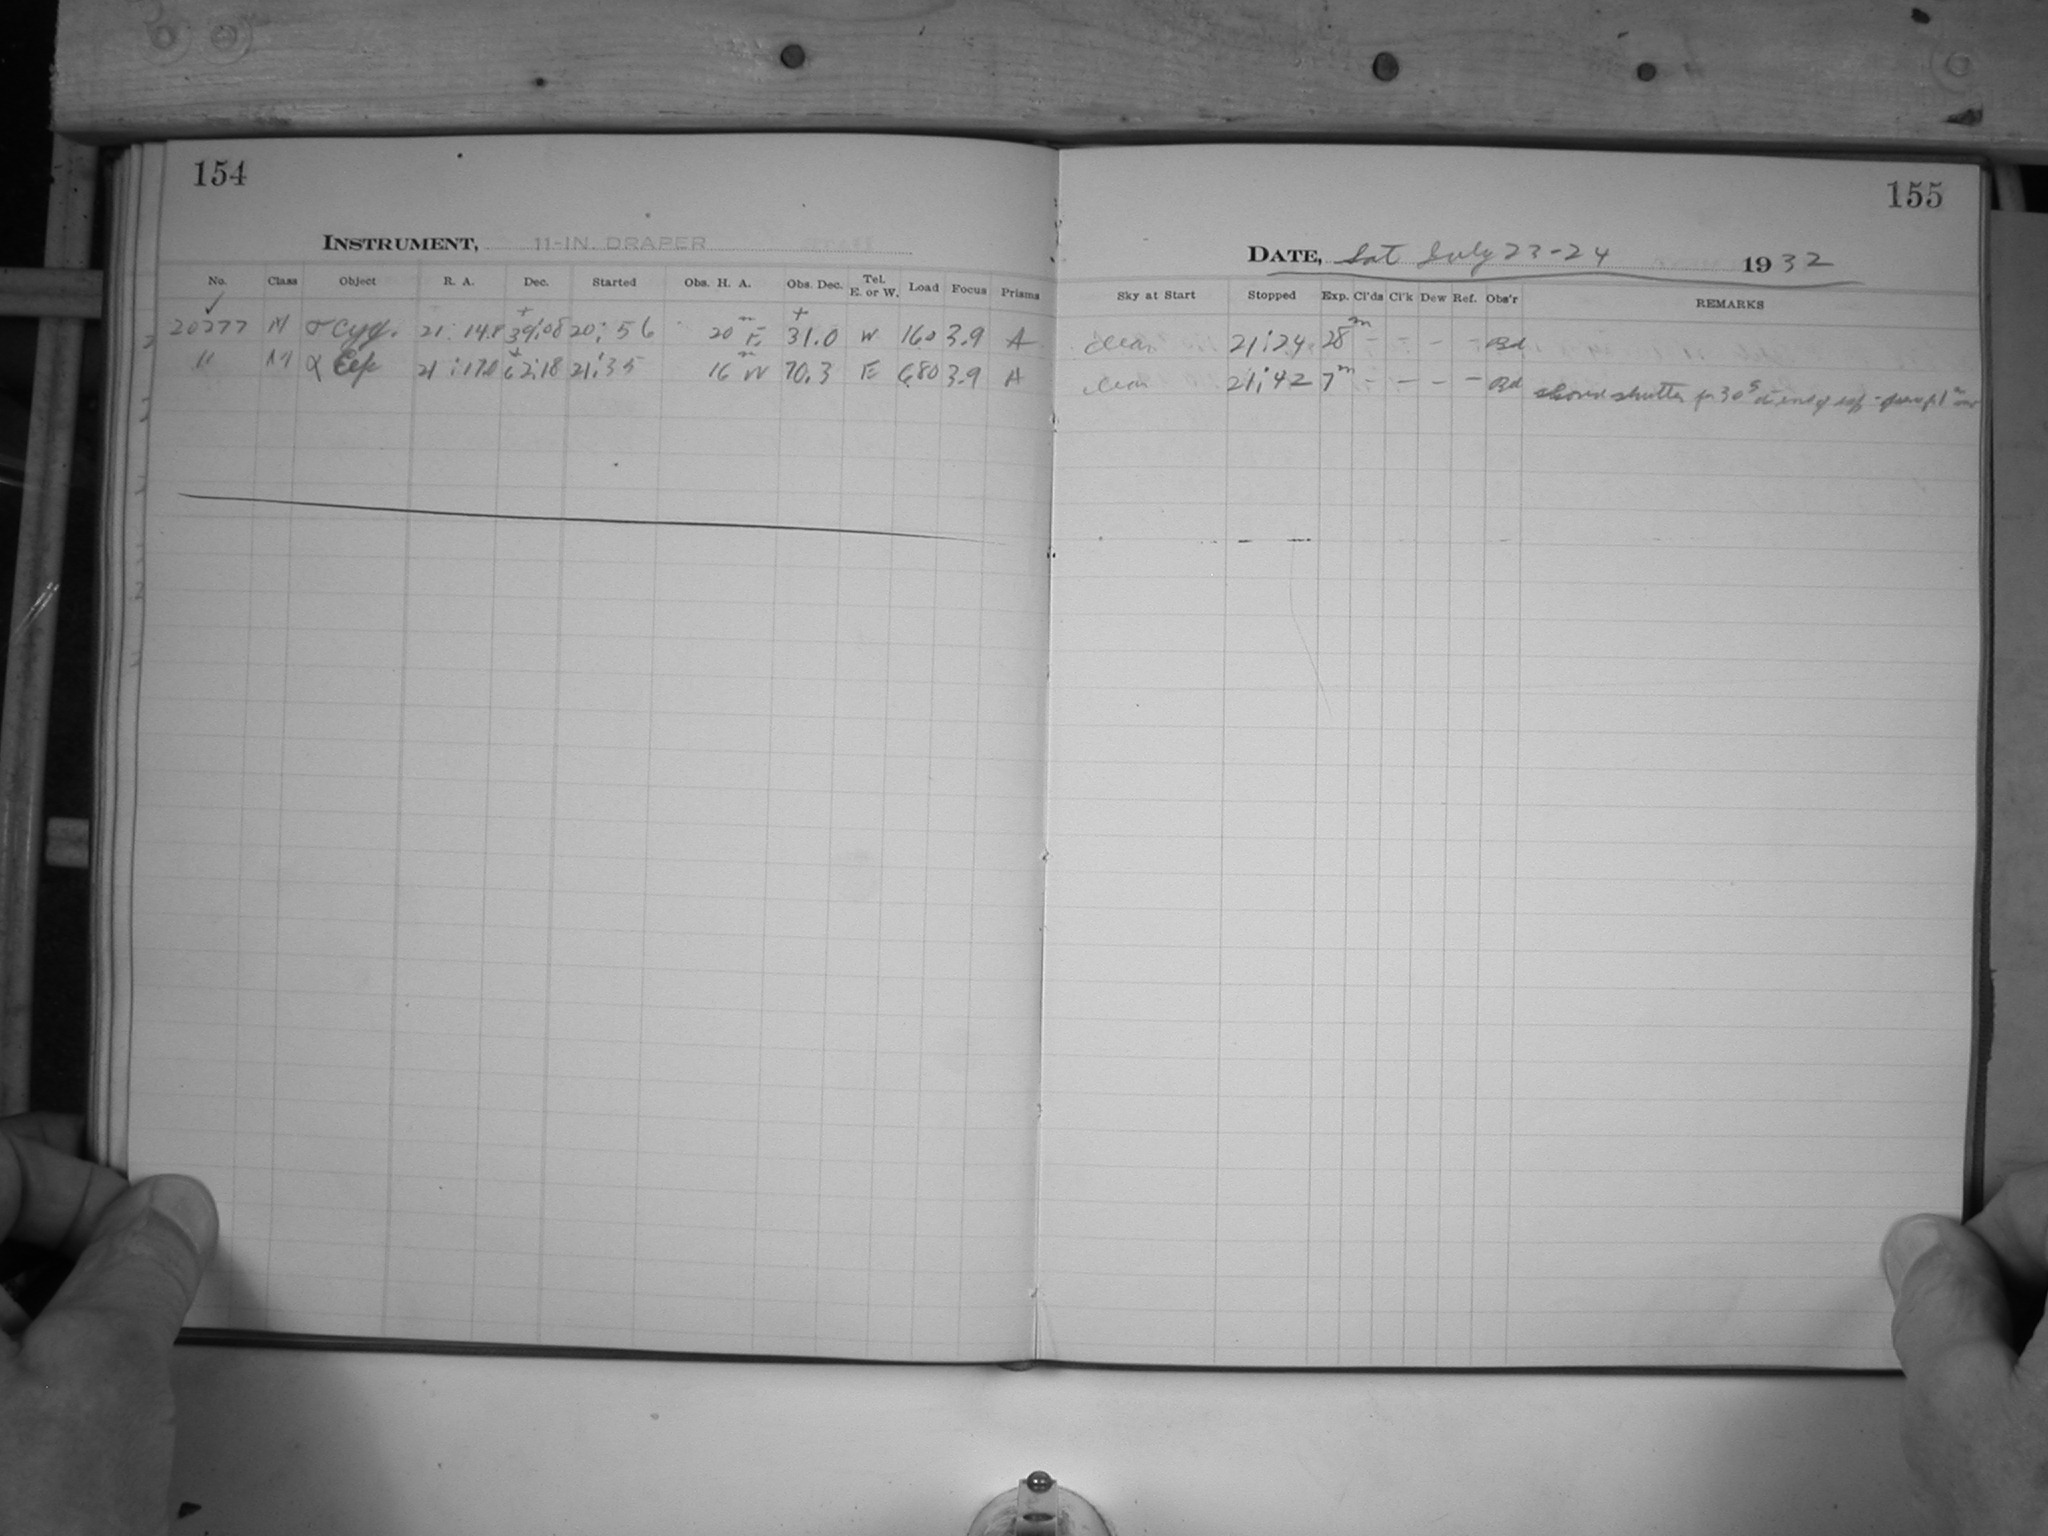 154
INSTRUMENT, 11-IN. DRAPER
No. Class Object R. A. Dec. Started Obs. H. A. Obs. Dec. Tel. E. or W. Load Focus Prisms
✓
20277 M σ Cyg. 21:14.8 +39:08 20:56 20m E +31.0 W 160 3.9 A
" M α Cep 21:17.0 +62:18 21:35 16m W 70.3 E 680 3.9 A
155
DATE, Sat July 23-24 1932
Sky at Start Stopped Exp. Cl'ds Cl'k Dew Ref. Obs'r REMARKS
clear 21:24 28m - - - -
clear 21:42 7m - - - - shutter for 30s end of exp -